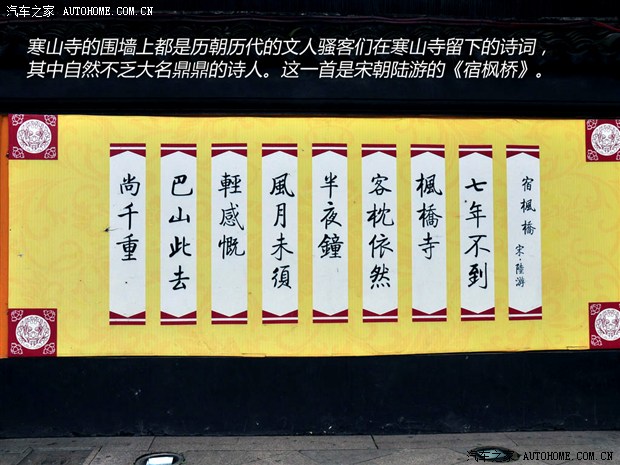 汽车之家 AUTOHOME.COM.CN
寒山寺的围墙上都是历朝历代的文人骚客们在寒山寺留下的诗词，
其中自然不乏大名鼎鼎的诗人。这一首是宋朝陆游的《宿枫桥》。
宿楓橋 宋·陸游
七年不到
楓橋寺
客枕依然
半夜鐘
風月未須
輕感慨
巴山此去
尚千重
汽车之家 AUTOHOME.COM.CN